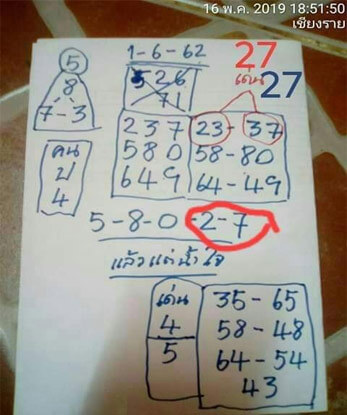 16 พ.ค. 2019 18:51:50
เชียงราย
1-6-62
27
เด่น
27
5
8
7-3
526
71
237
580
649
23-37
58-80
64-49
คน
บ
4
5-8-0-2-7
แล้วแต่น้ำใจ
เด่น
4
5
35-65
58-48
64-54
43